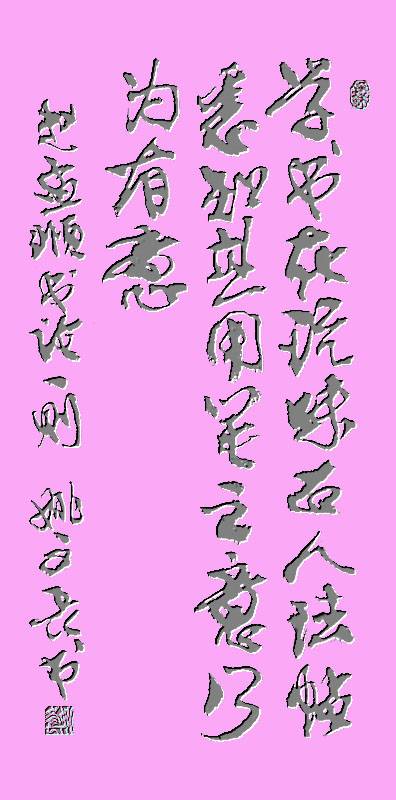 学书在玩味古人法帖
悉知其用笔之意乃
为有益
赵孟頫书论一则 姚书